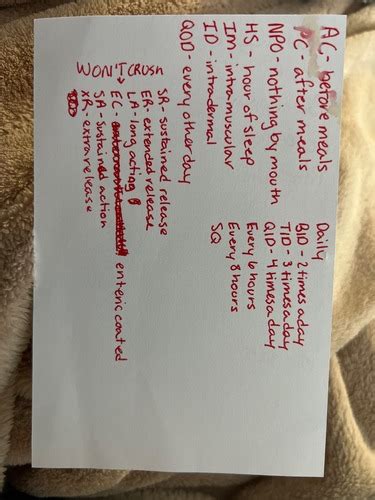 AC- before meals
PC- after meals
NPO- nothing by mouth
HS- hour of sleep
IM- intramuscular
ID- intradermal
QOD- every other day
Daily
BID- 2 times a day
TID- 3 times a day
QID- 4 times a day
Every 6 hours
Every 8 hours
SQ
WON'T CRUSH
SR- sustained release
ER- extended release
LA- long acting
EC- enteric coated
SA- sustained action
XR- extra release